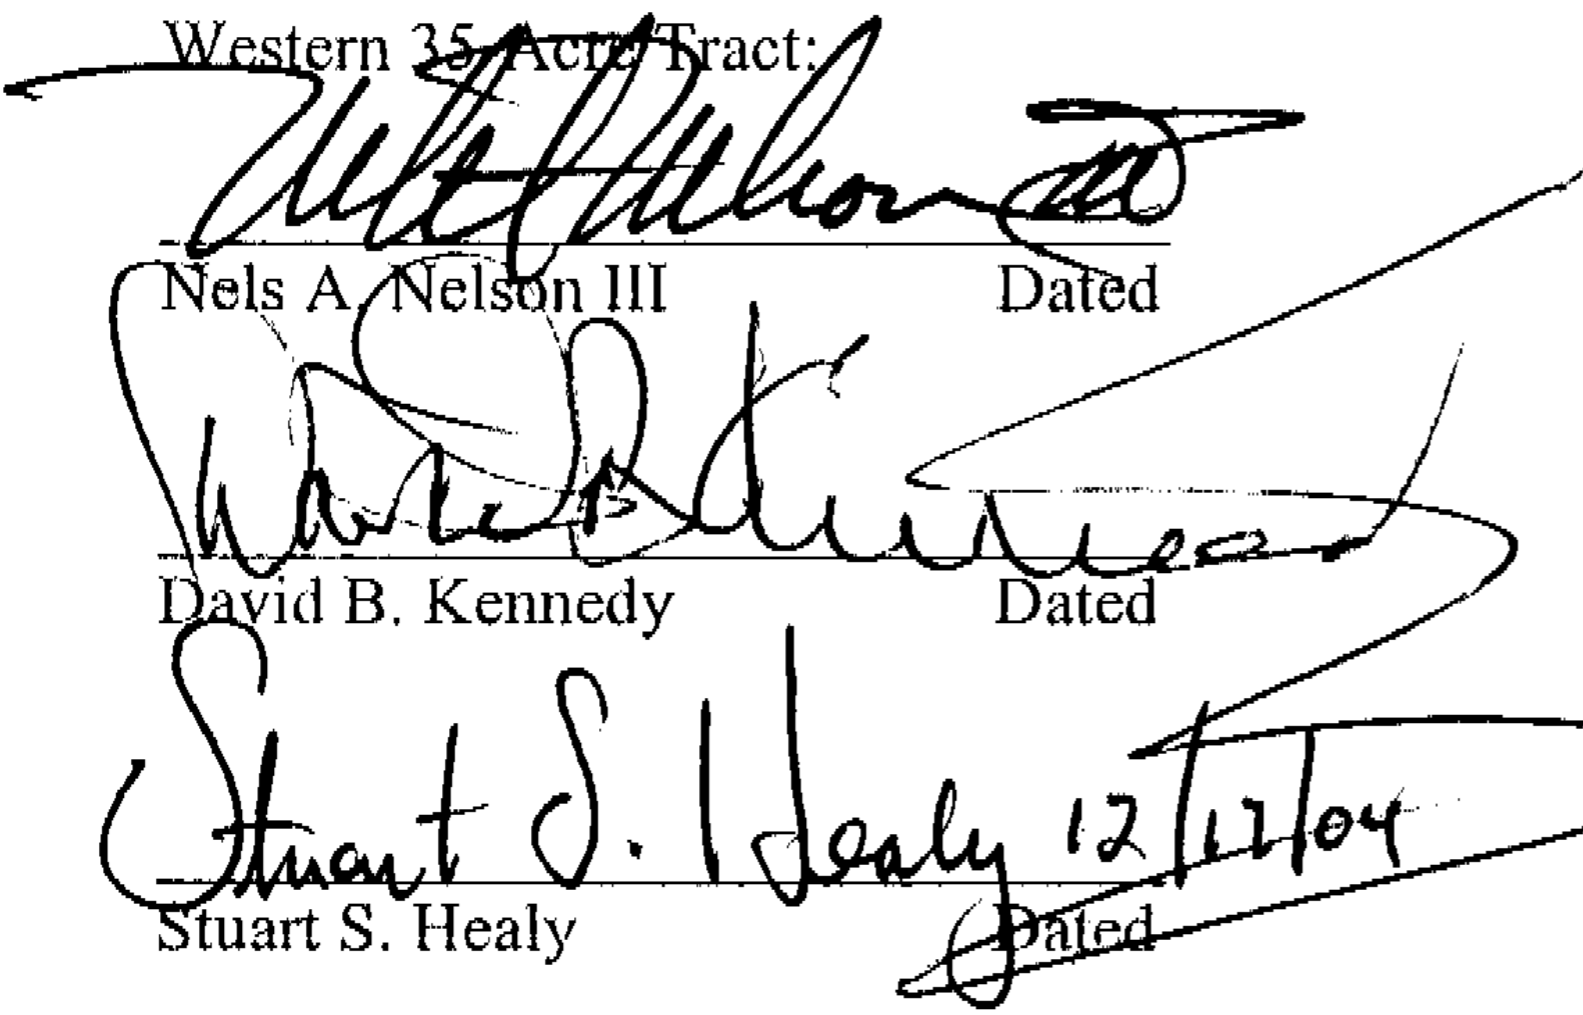 Western 35 Acre Tract:
Nels A. Nelson III Dated
David B. Kennedy Dated
Stuart S. Healy 12/17/04
Stuart S. Healy Dated